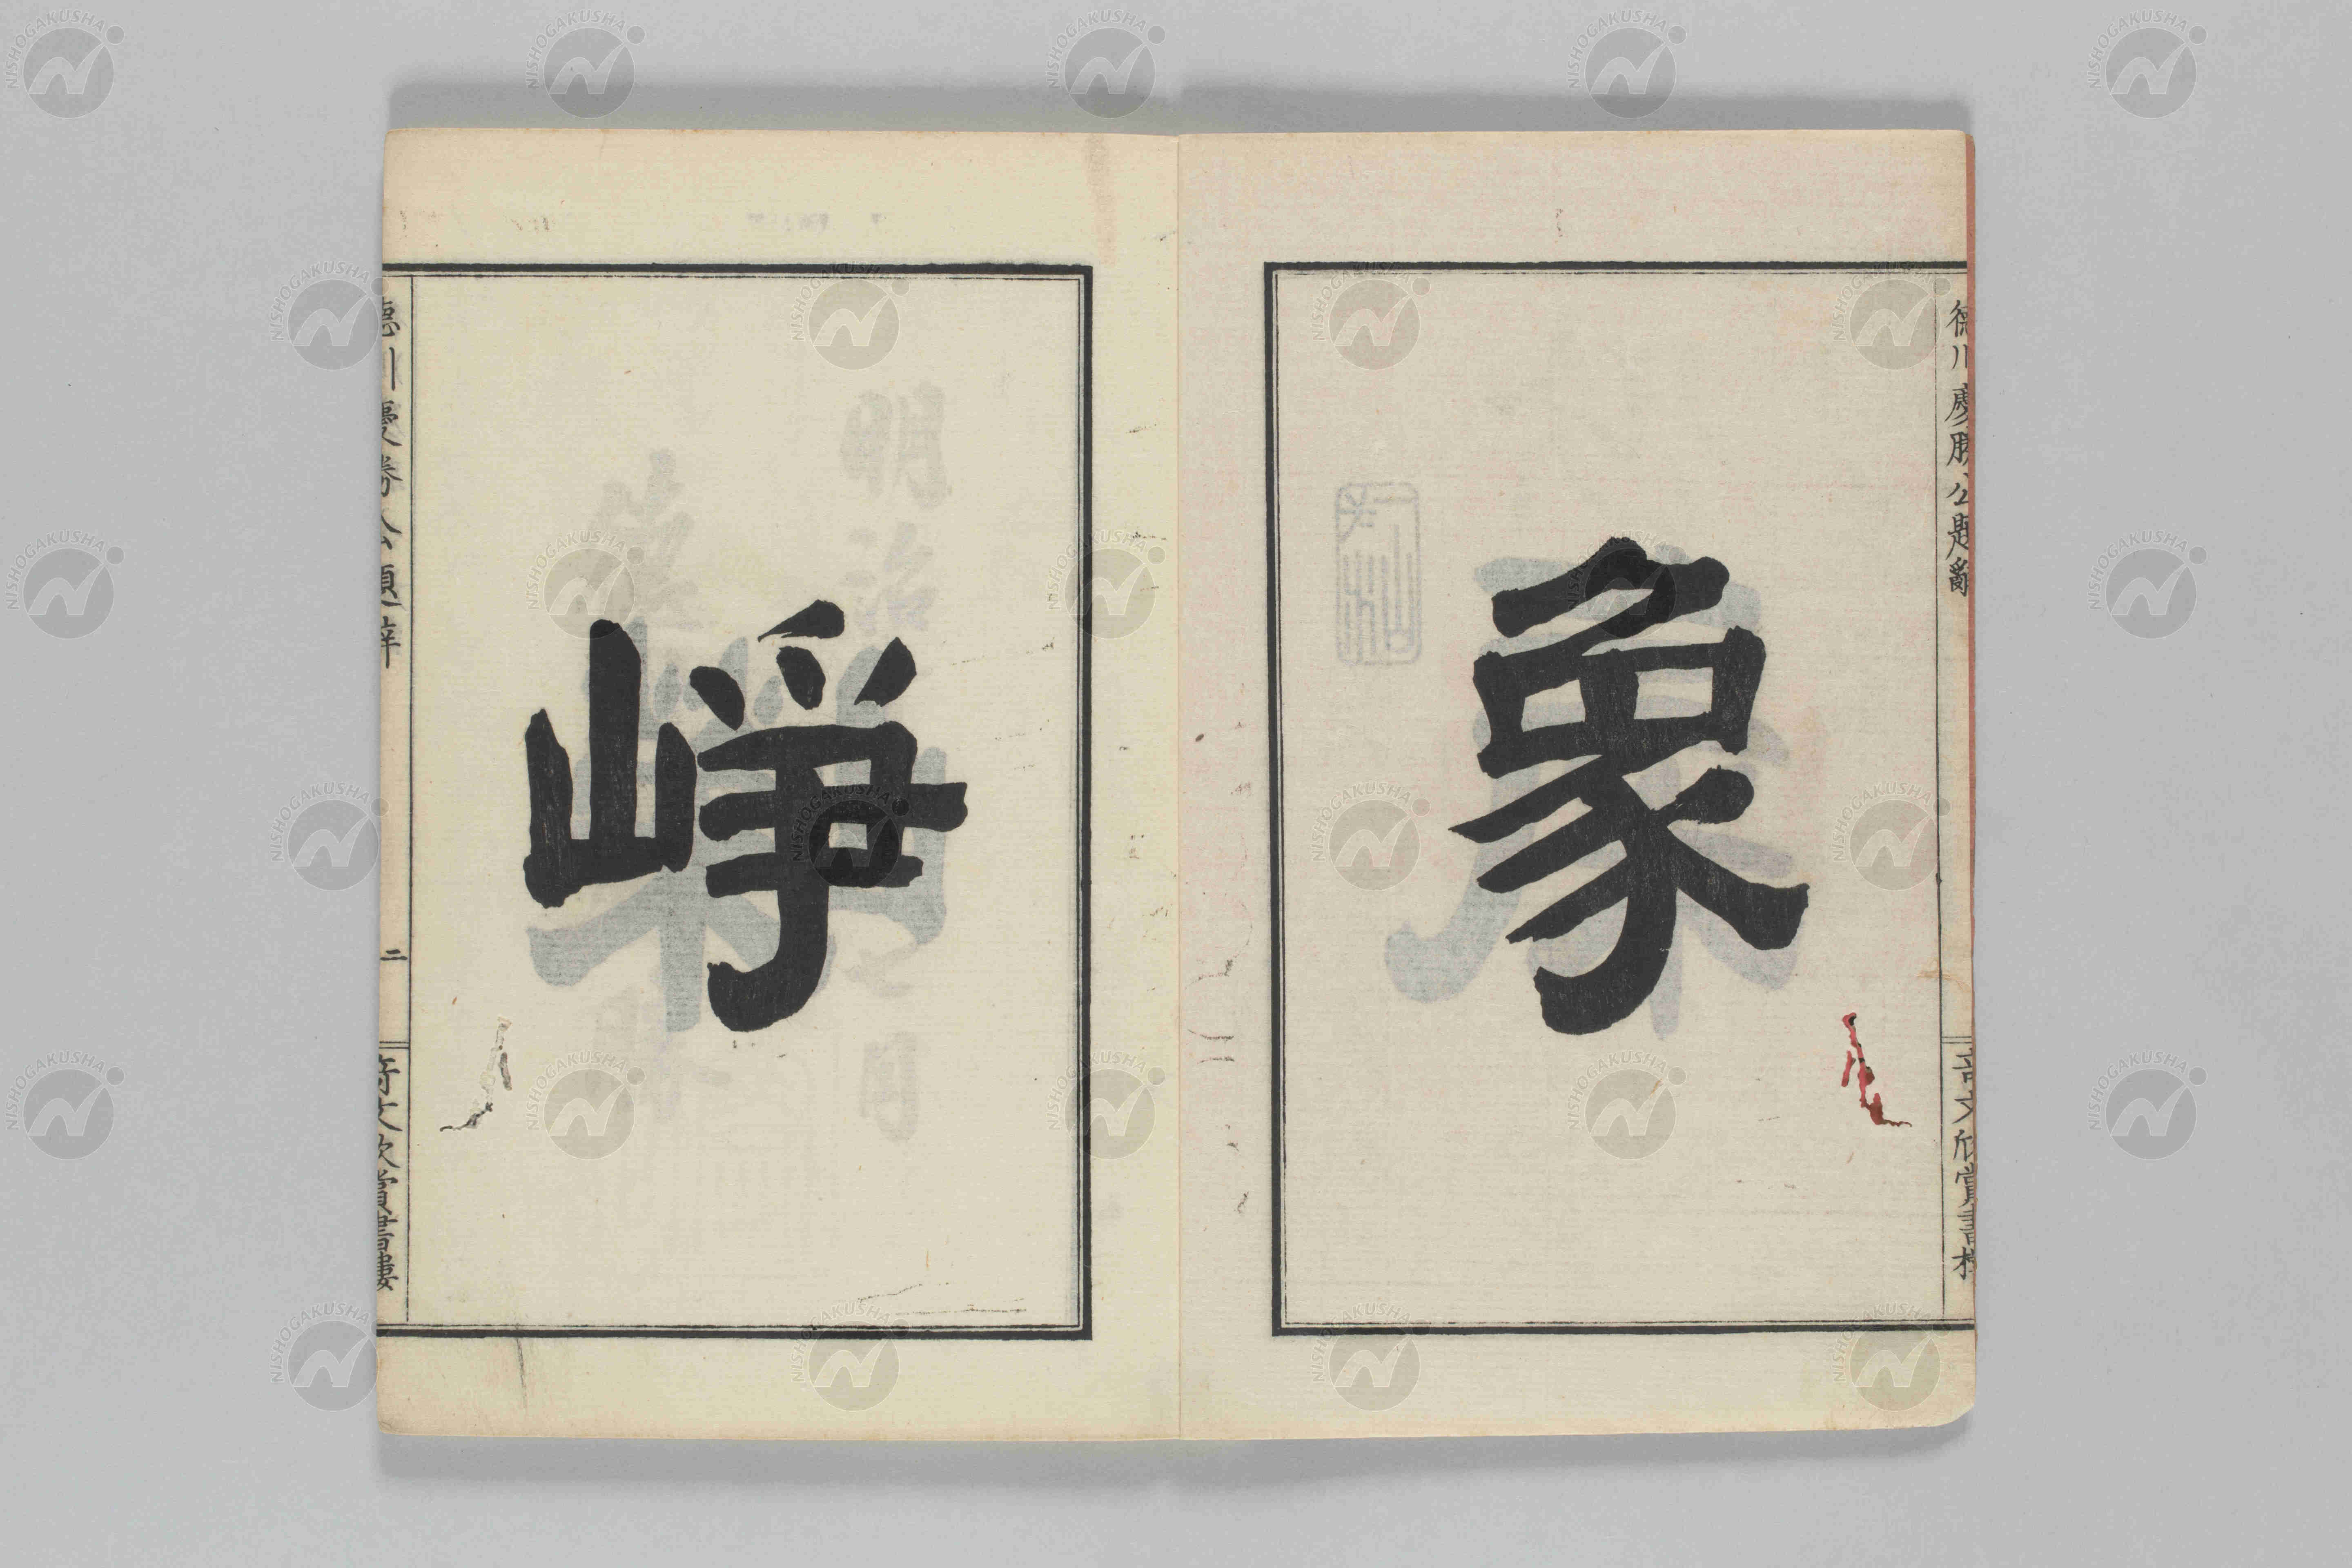 徳川慶勝公題辭
奇文欣賞書樓
象
崢
徳川慶勝公題辭
二
奇文欣賞書樓
NISHOGAKUSHA